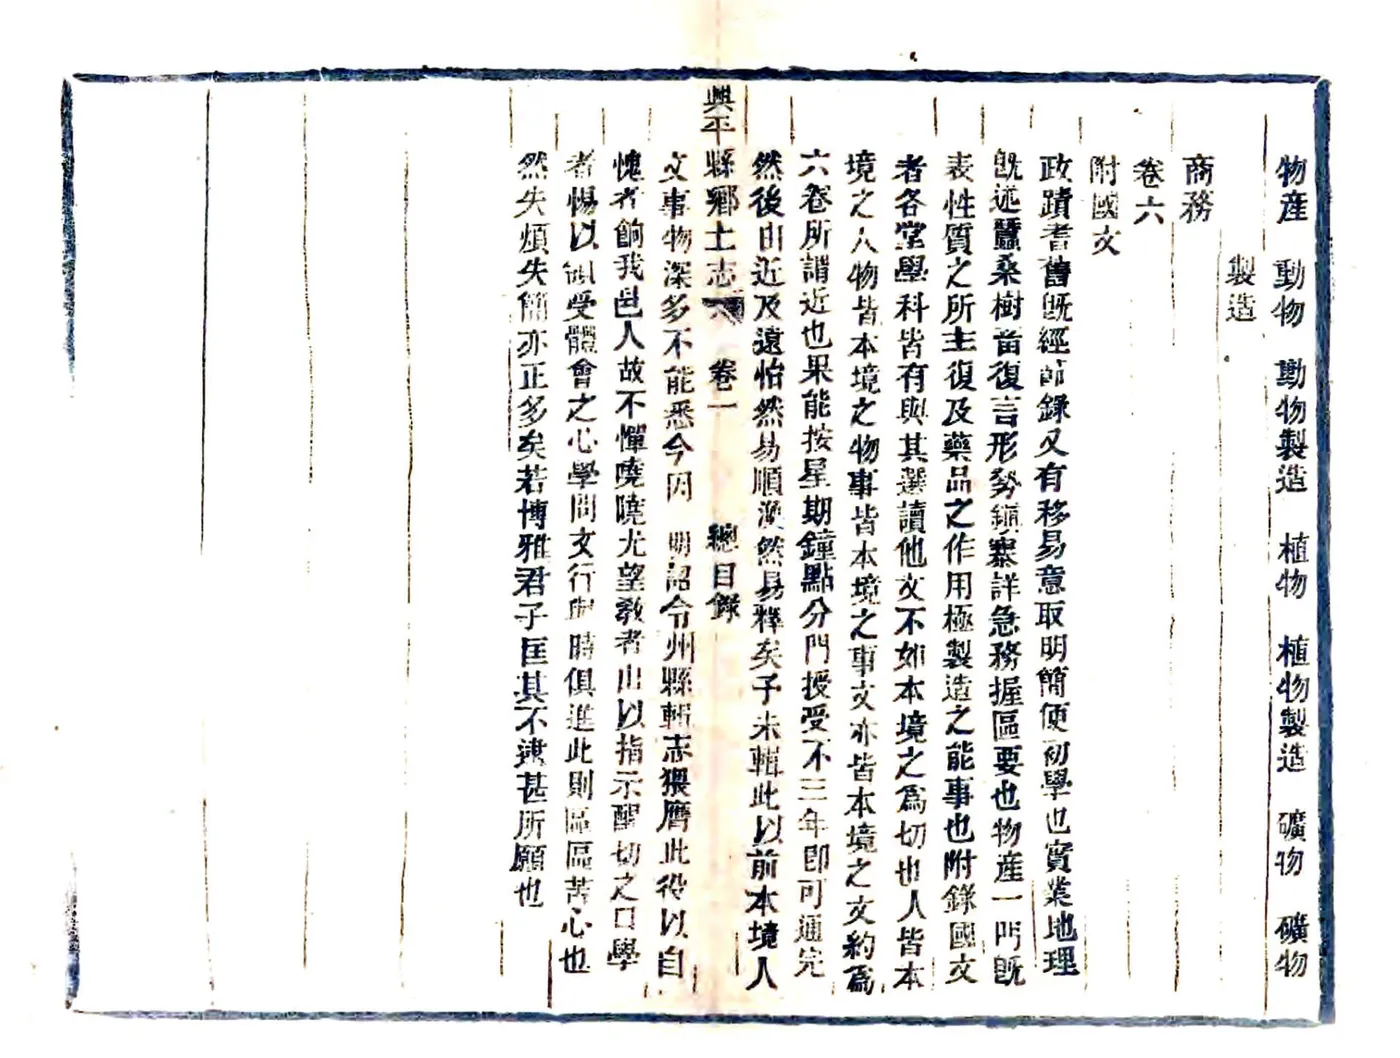 物産 動物 動物製造 植物 植物製造 礦物 礦物
製造
商務
卷六
附國文
政蹟耆舊旣經前錄又有移易意取明簡便初學也實業地理
旣述蠶桑樹畜復言形勢鎭寨詳急務握區要也物產一門旣
表性質之所主復及藥品之作用極製造之能事也附錄國文
者各堂學科皆有與其選讀他文不如本境之爲切也人皆本
境之人物皆本境之物事皆本境之事文亦皆本境之文約爲
六卷所謂近也果能按星期鐘點分門授受不三年卽可通完
然後由近及遠怡然易順渙然易釋矣予未輯此以前本境人
興平縣鄉土志 卷一 總目錄
文事物深多不能悉今因 明詔令州縣輯志猥膺此役以自
愧者餉我邑人故不憚曉曉尤望敎者由以指示醒切之口學
者惕以領受體會之心學問文行與時俱進此則區區苦心也
然失煩失簡亦正多矣若博雅君子匡其不逮甚所願也